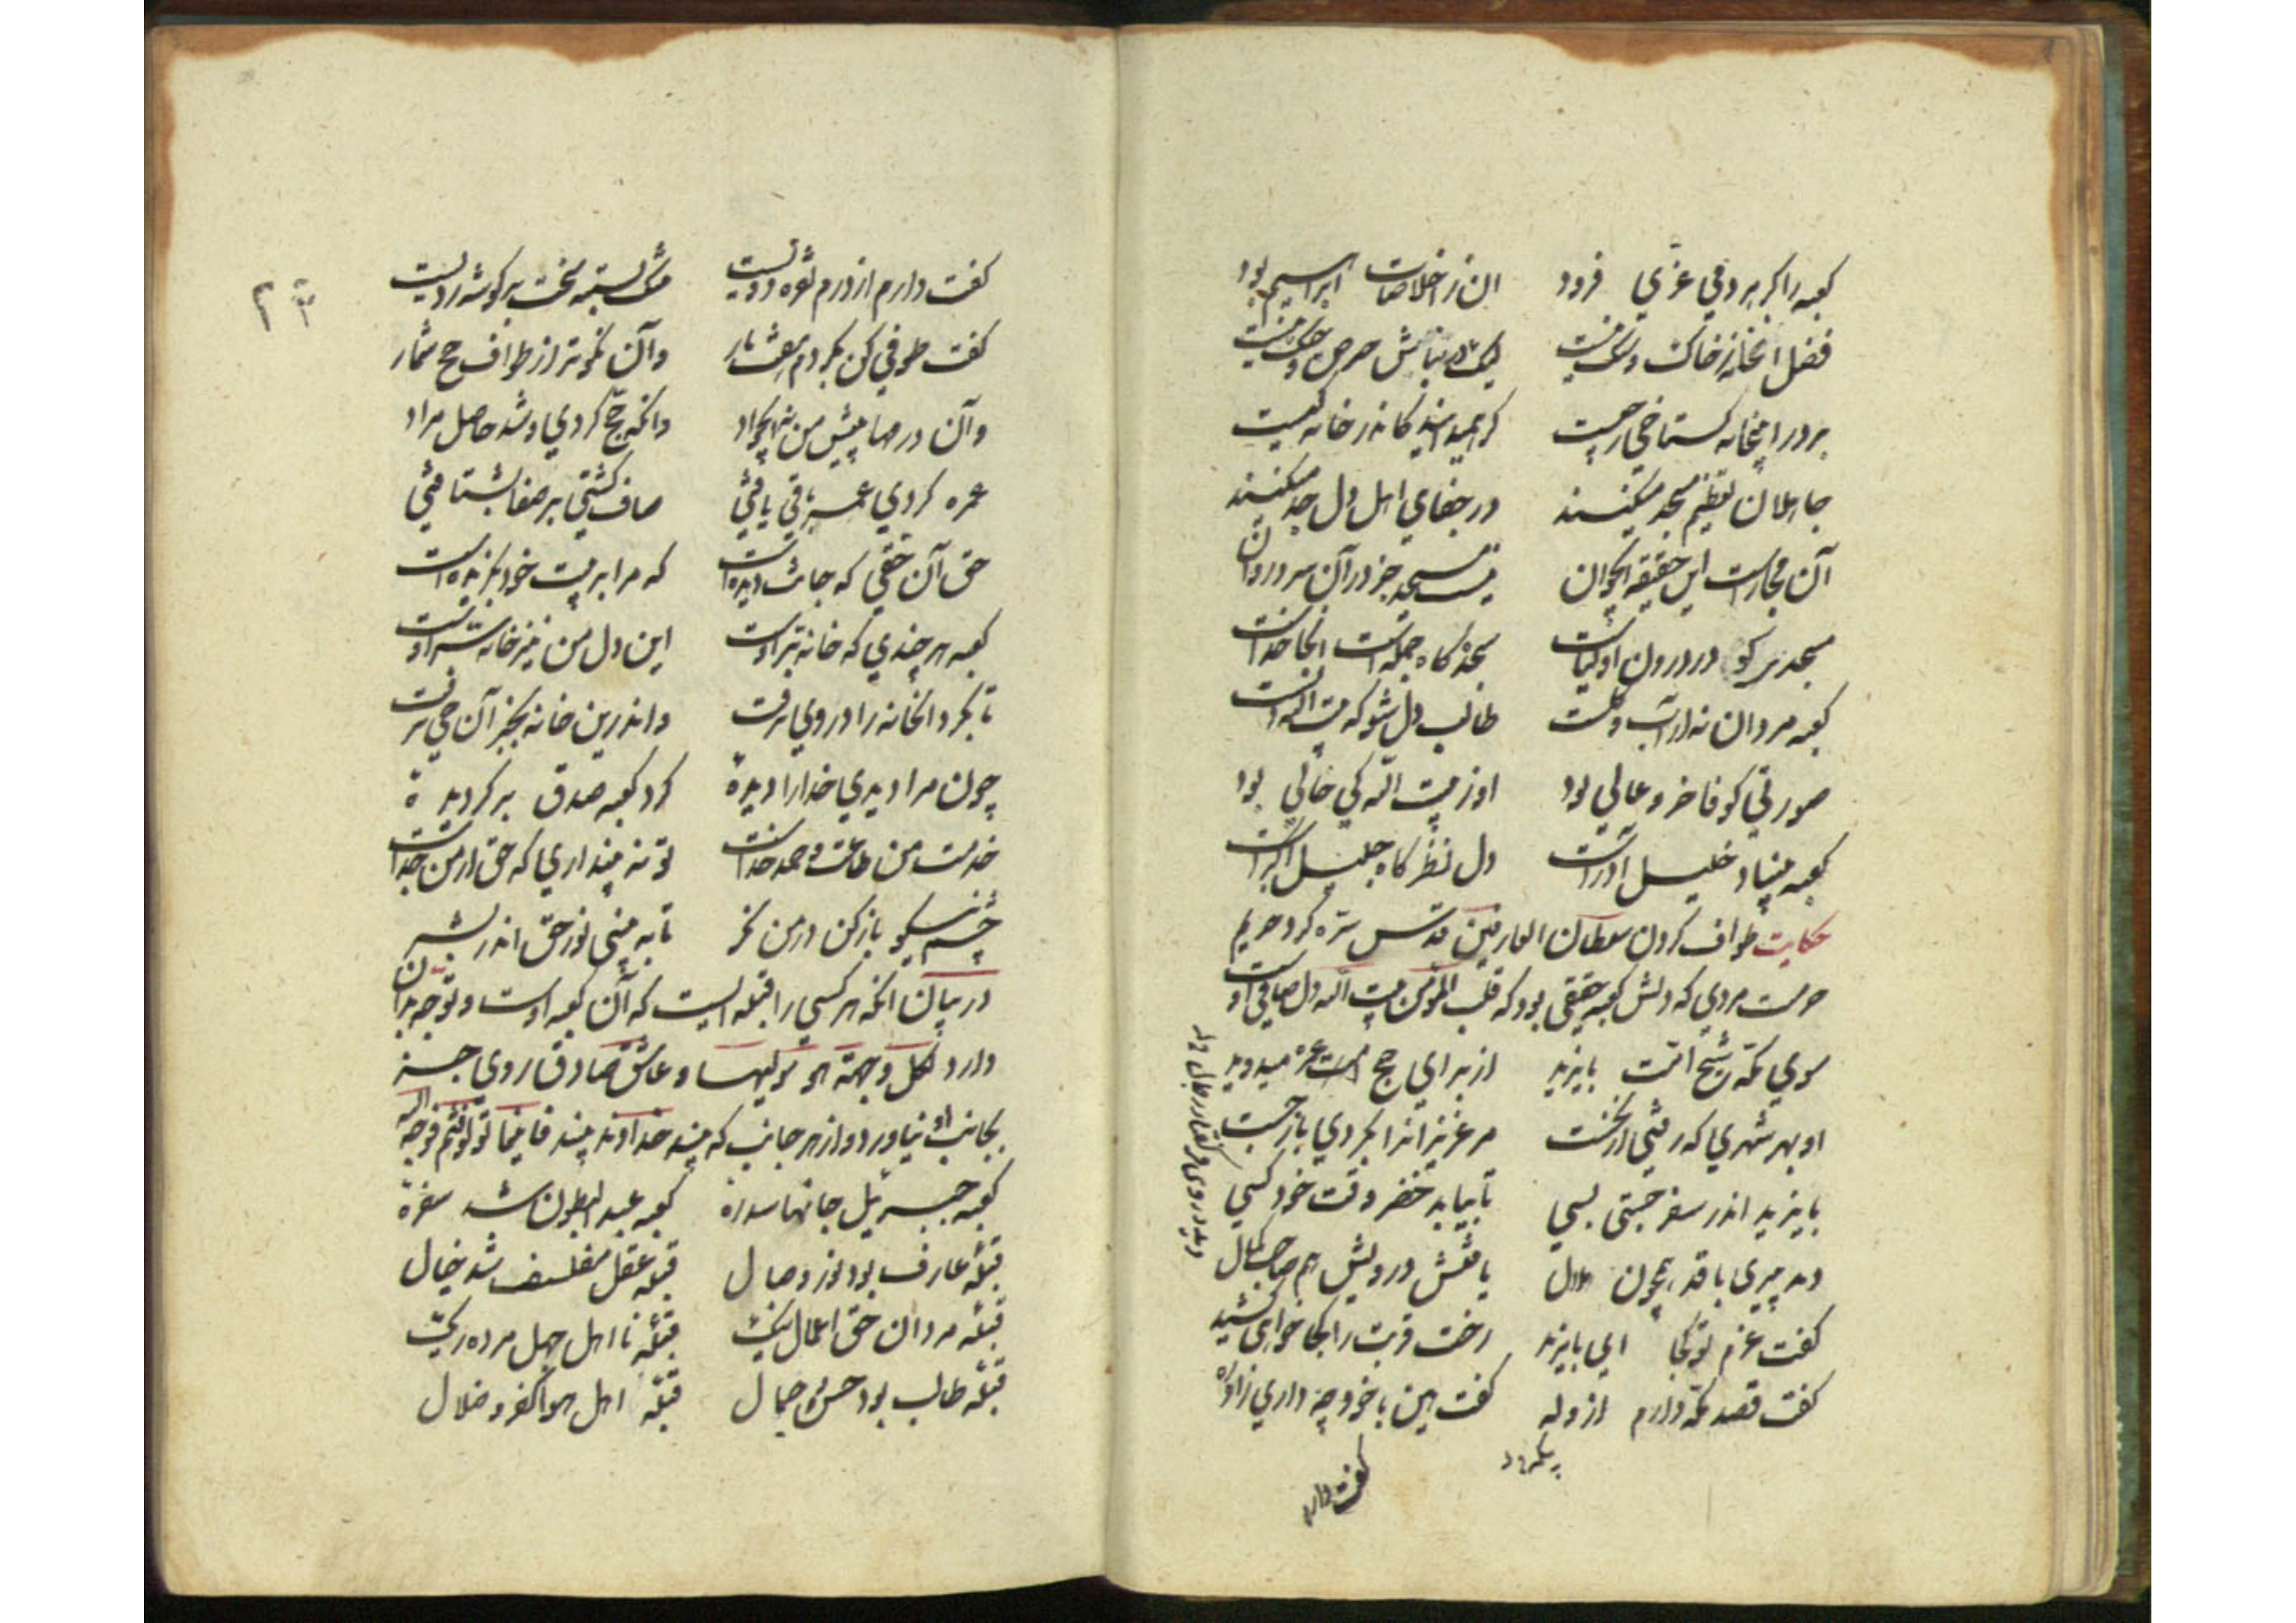 کعبه را کر هر دمی عزی فزود ان ز اخلاصات ابراهیم بود
فضل انخانه ز خاک و سنک نیست لیک در بنایش حرص و جنک نیست
بر در اینخانه کستاخی ز چیست کر همیدانید کاندر خانه کیست
جاهلان تعظیم مسجد میکنند در جفای اهل دل جد میکنند
آن مجازست این حقیقه ایخران نیست مسجد جز درآن سروران
مسجدی کو در درون اولیاست سجده کاه جمله است انجا خداست
کعبه مردان نه از آب و کلست طالب دل شو که بیت الله دلست
صورتی کو فاخر و عالی بود او ز بیت الله کی خالی بود
کعبه بنیاد خلیل آذرست دل نظرکاه جلیل اکبرست
حکایت طواف کردن سلطان العارفین قدس سره کرد حریم
حرمت مردی که دلش کعبه حقیقی بود که قلب المؤمن بیت الله دل صافی اوست
سوی مکه شیخ امت بایزید از برای حج و عمره میدوید
او بهر شهری که رفتی از نخست مر عزیزانرا بکردی باز جست
بایزید اندر سفر جستی بسی تا بیابد خضر وقت خود کسی
دید پیری با قد همچون هلال یافتش درویش و هم صاحب کمال
کفت عزم تو کجا ای بایزید رخت غربت را کجا خواهی کشید
کفت قصد مکه دارم از وله کفت هین با خود چه داری زاد ره
دید در وی فر و کفتار رجال
کفت دارم
کفت دارم از درم نقره دویست نک ببسته سخت بر کوشه ردیست
کفت طوفی کن بکردم هفت بار وآن نکوتر از طواف حج شمار
وآن درمها پیش من نه ایجواد دانکه حج کردی و شد حاصل مراد
عمره کردی عمر باقی یافتی صاف کشتی بر صفا بشتافتی
حق آن حقی که جانت دیده است که مرا بر بیت خود بکزیده است
کعبه هر چندی که خانه بر اوست این دل من نیز خانه سر اوست
تا بکرد انخانه را در وی نرفت واندرین خانه بجز آن حی نرفت
چون مرا دیدی خدا را دیدهٔ کرد کعبه صدق بر کردیدهٔ
خدمت من طاعت و حمد خداست تو نه پنداری که حق از من جداست
چشم نیکو باز کن در من نکر تا ببینی نور حق اندر بشر
در بیان انکه هر کسی را قبله ایست که آن کعبه اوست و توجه بدان
دارد لکل وجهة هو مولیها و عاشق صادق روی جز
بجانب او نیاورد و از هر جانب که بیند خداوند بیند فاینما تولوا فثم وجه الله
کعبه جبریل جانها سدرهٔ کعبه عبد البطون شد سفرهٔ
قبله عارف بود نور وصال قبله عقل مفلسف شد خیال
قبله مردان حق اعمال نیک قبله نا اهل جهل مرده ریک
قبله طالب بود حسن جمال قبله اهل هوا کفر و ضلال